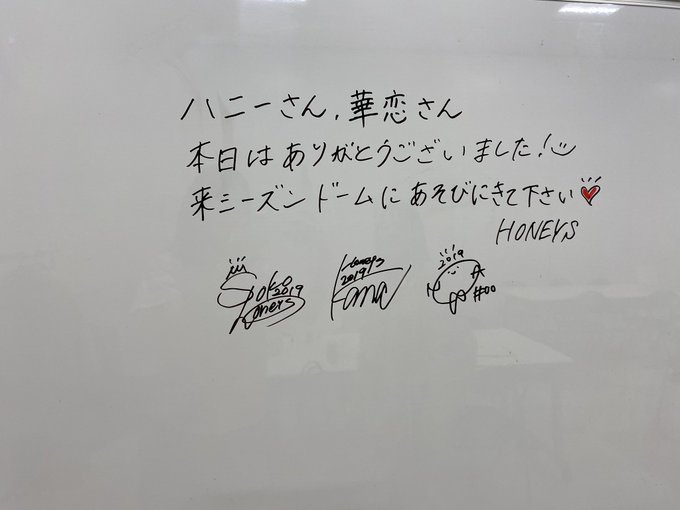 ハニーさん,華恋さん
本日はありがとうございました!
来シーズンドームにあそびにきて下さい
HONEYS
2019
Honeys
honeys
2019
2019
#00